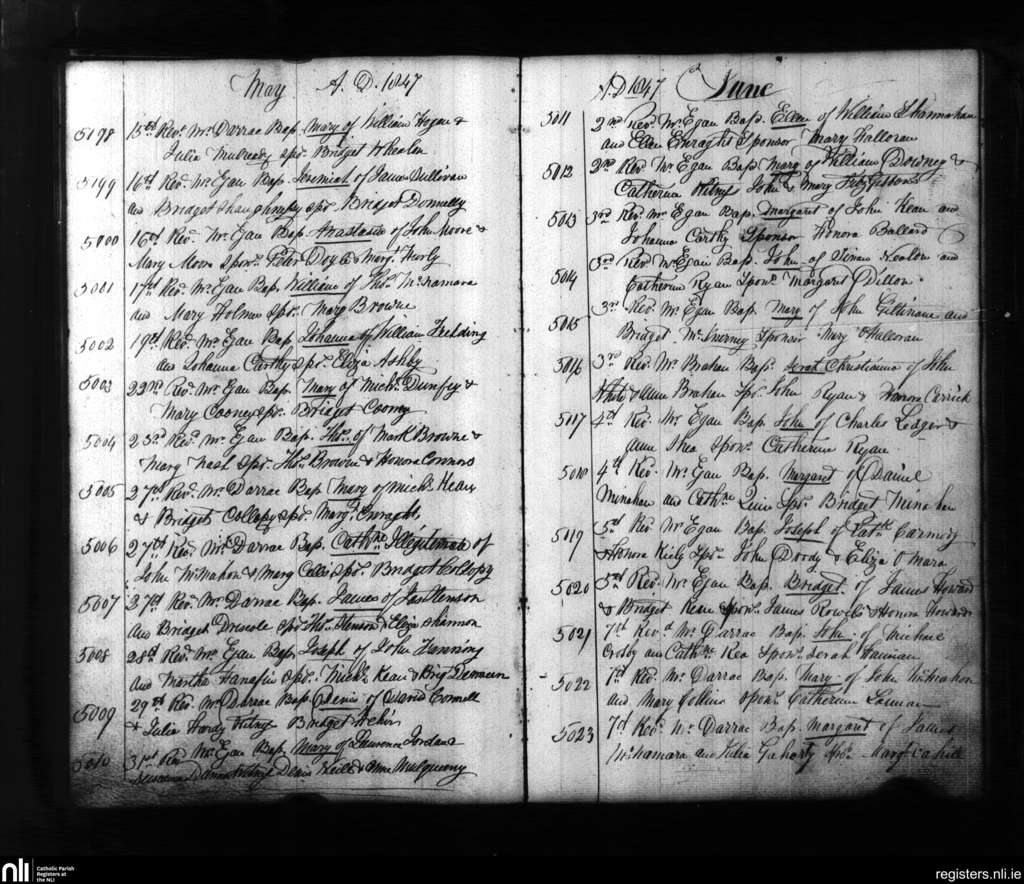 May A. D. 1847
5198 15th Revd. Mr. Darrac Bap. Mary of William Hogan &
Julia Mulready spr. Bridget Whealon
5199 16th Revd. Mr. Egan Bap. Jeremiah of James Sullivan
and Bridget Shaughnessy spr. Bridget Donnelly
5000 16th Revd. Mr. Egan Bap. Anastasia of John Moore &
Mary Moore Sponr. Peter Doyle & Margt. Hurly
5001 17th Revd. Mr. Egan Bap. William of Thos. McNamara
and Mary Holmes spr. Mary Browne
5002 19th Revd. Mr. Egan Bap. Johanna of William Fielding
and Johanna Carthy spr. Eliza Ashby
5003 22nd Revd. Mr. Egan Bap. Mary of Michl. Dunfey &
Mary Cooney spr. Bridget Cooney
5004 23rd Revd. Mr. Egan Bap. Thos. of Mark Browne &
Mary Nash spr. Thos. Browne & Honora Connors
5005 27th Revd. Mr. Darrac Bap. Mary of Michl. Keane
& Bridget Collopy spr. Margt. Enright
5006 27th Revd. Mr. Darrac Bap. Cathne. Illegitimate of
John McMahon & Mary spr. Bridget Collopy
5007 27th Revd. Mr. Darrac Bap. James of Jas. Henson
and Bridget Driscole spr. Thos. Henson & Eliza Shannon
5008 28th Revd. Mr. Egan Bap. Joseph of John Fanning
and Martha Hanafin spr. Michl. Kean & Brigt
5009 29th Revd. Mr. Darrac Bap. Denis of David Connell
& Julia Hardy Witns Bridget
5010 31st Rev Mr. Egan Bap. Mary of Laurence Jordan &
Witns Denis Neill & Anne Mulqueeny
A.D 1847 June
5011 2nd Revd. Mr. Egan Bap. Ellen of William Shannahan
and Ellen Enraght Sponsor Mary Halloran
5012 2nd Revd. Mr. Egan Bap. Mary of William Downey &
Catherine Witns John & Mary FitzGibbons
5013 3rd Revd. Mr Egan Bap. Margaret of John Kean and
Johanna Carthy Sponsor Honora Ballard
5014 3rd Revd Mr. Egan Bap. John of Simon Nealon and
Catherine Ryan Sponr. Margaret Dillon
5015 3rd Revd Mr. Egan Bap. Mary of John Gillinane and
Bridget McInerney Sponsor Mary OHalloran
5016 3rd Revd. Mr. Brahan Bap. Sarah Christianna of John
White & Anne Brahan Spr. John Ryan & Hanna Cerrick
5017 4th Revd. Mr Egan Bap. John of Charles Ledger &
Anne Shea sponr. Catherine Ryan
5018 4th Revd. Mr. Egan Bap. Margaret of Daniel
Minahan and Cathne Quin Spr. Bridget Minahan
5019 5th Revd Mr Egan Bap. Joseph of Patk. Carmody
Honora Kiely Spr. John Doody & Eliza O Mara
5020 5th Revd. Mr. Egan Bap. Bridget of James Howard
& Bridget Kean Sponr. James Rowels & Honora Howard
5021 7th Revd Mr. Darrac Bap. John of Michael
Crosby and Cathne. Rea Sponr. Sarah Hannan
5022 7th Revd. Mr. Darrac Bap. Mary of John McMahon
and Mary Collins sponr. Catherine
5023 7th Revd. Mr. Darrac Bap. Margaret of James
McNamara and Julia Gahorty Spr. Mary Cahill
nli
Catholic Parish
Registers at
the NLI
registers.nli.ie